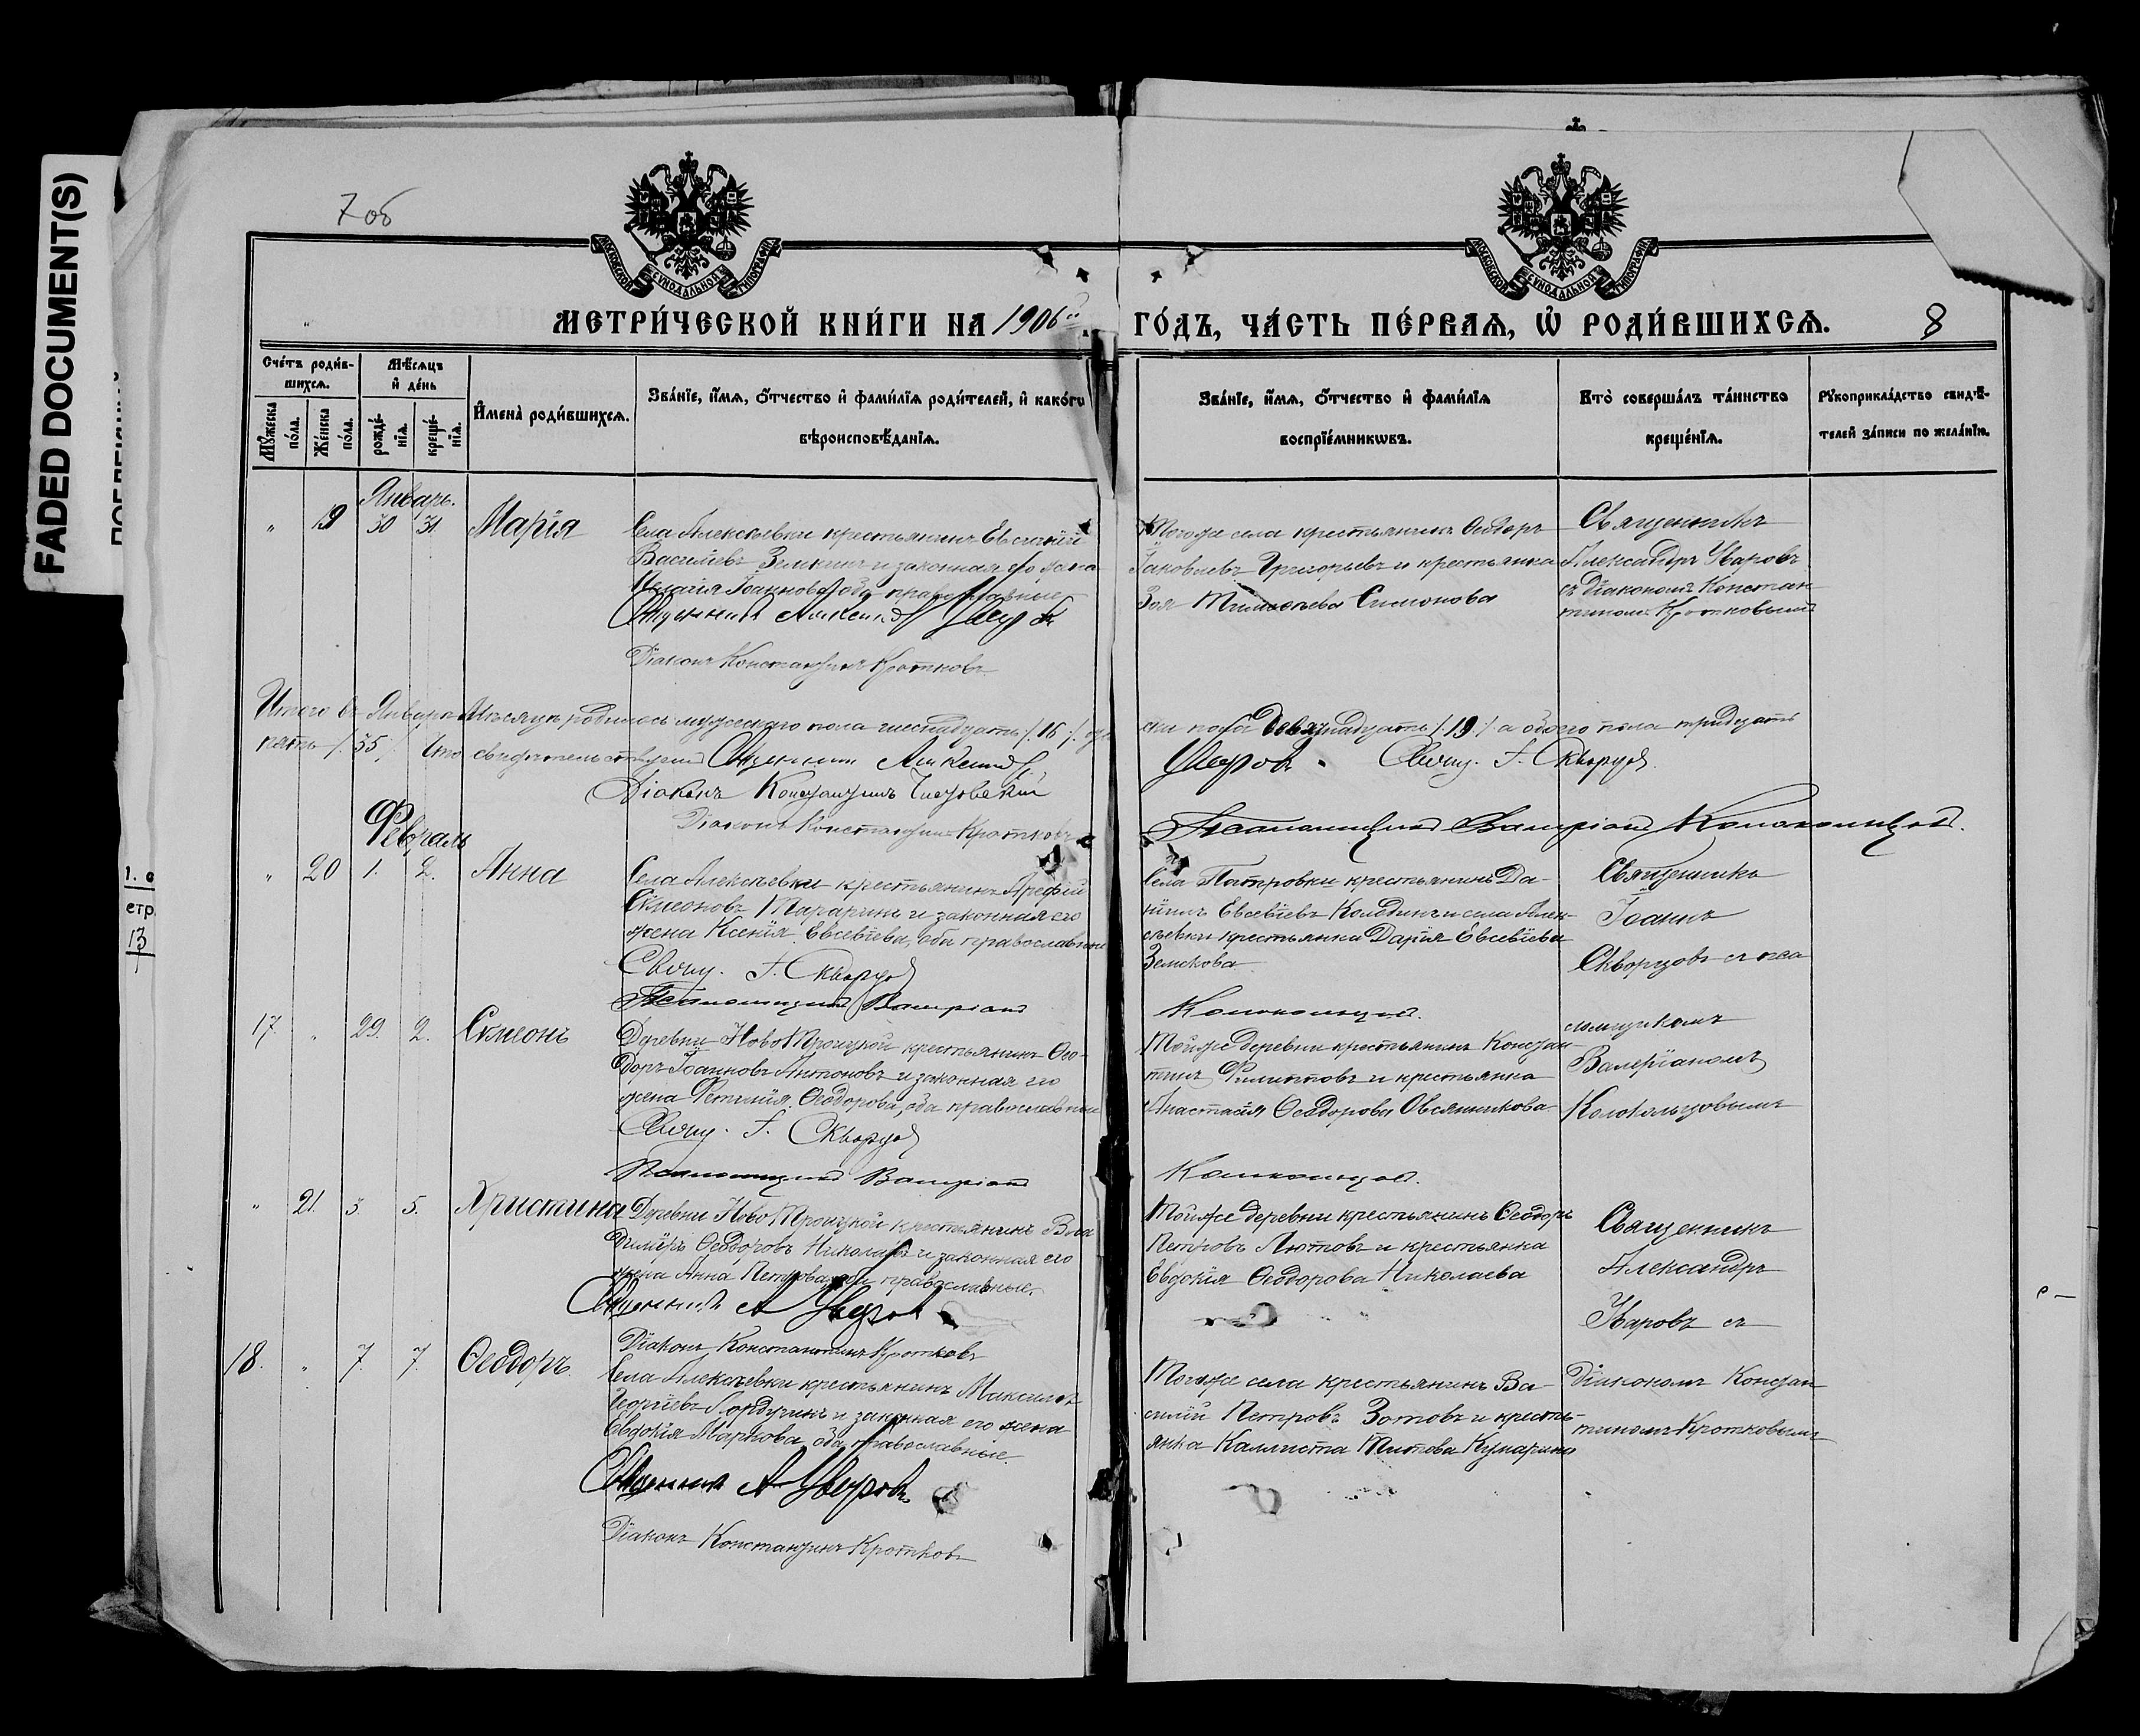 FADED DOCUMENT(S)
7 об
МОСКОВСКОЙ СѴНОДАЛЬНОЙ ТИПОГРАФІИ
МОСКОВСКОЙ СѴНОДАЛЬНОЙ ТИПОГРАФІИ
МЕТРИ́ЧЕСКОЙ КНИ́ГИ НА 1906 й
ГО́ДЪ, ЧА́СТЬ ПЕ́РВАѦ, Ѡ҆ РОДИ́ВШИХСѦ.
8
Сче́тъ роди́в-
шихсѧ.
Мѣ́сѧцъ
и҆ де́нь
Мꙋ́жеска по́ла.
Же́нска по́ла.
рожде́-
нїѧ.
креще́-
нїѧ.
И҆мена̀ роди́вшихсѧ.
Зва́нїе, и҆́мѧ, ѻ҆́тчество и҆ фами́лїѧ роди́телей, и҆ како́гѡ
вѣроисповѣ́данїѧ.
Зва́нїе, и҆́мѧ, ѻ҆́тчество и҆ фами́лїѧ
воспрїе́мникѡвъ.
Кто̀ соверша́лъ та́инство
креще́нїѧ.
Рꙋкоприкла́дство свидѣ́-
телей за́писи по жела́нїю.
Январь.
" 19 30 31 Марія
Села Алексѣевки крестьянинъ Евсигній
Васильевъ Земкинъ и законная его жена
Іоаннова, оба православные
Священникъ Александръ Уваровъ
Діаконъ Константинъ Кротковъ
Тогоже села крестьянинъ Ѳеодоръ
Іаковлевъ Григорьевъ и крестьянка
Зоя Тимоѳеева Симонова
Священникъ
Александръ Уваровъ
съ діакономъ Констан-
тиномъ Кротковымъ
Итого въ Январѣ мѣсяцѣ родилось мужескаго пола шестнадцать /16/, жен-
ска пола девятнадцать /19/ а обоего пола тридцать
пять /35/ Что свидѣтельствуемъ Священникъ Александръ
Уваровъ. Свящ. І. Скворцовъ
Діаконъ Константинъ
Діаконъ Константинъ Кротковъ
Псаломщикъ Валеріанъ Колокольцовъ.
Февраль
" 20 1. 2. Анна
Села Алексѣевки крестьянинъ Арефій
Симеоновъ Тараринъ и законная его
жена Ксенія Евсевіева, оба православные
Свящ. І. Скворцовъ
Псаломщикъ Валеріанъ
Села Петровки крестьянинъ Да-
ніилъ Евсевіевъ Колодинъ и села Алек-
сѣевки крестьянка Дарія Евсевіева
Земскова
Колокольцовъ.
Священникъ
Іоаннъ
Скворцовъ съ пса
ломщикомъ
Валеріаномъ
Колокольцовымъ
17. " 29. 2. Симеонъ
Деревни НовоТроицкой крестьянинъ Ѳео-
доръ Іоанновъ Антоновъ и законная его
жена Фетинія Ѳеодорова, оба православные
Свящ. І. Скворцовъ
Псаломщикъ Валеріанъ
Тойже деревни крестьянинъ Констан-
тинъ Филипповъ и крестьянка
Анастасія Ѳеодорова Овсянникова
Колокольцовъ.
" 21. 3 5. Христина
Деревни НовоТроицкой крестьянинъ Вла
диміръ Ѳеодоровъ Николаевъ и законная его
жена Анна Петрова, оба православные.
Священникъ А Уваровъ
Діаконъ Константинъ Кротковъ
Тойже деревни крестьянинъ Ѳеодоръ
Петровъ Лютовъ и крестьянка
Евдокія Ѳеодорова Николаева
Священникъ
Александръ
Уваровъ съ
Діакономъ Констан
тиномъ Кротковымъ
18. " 7. 7. Ѳеодоръ
Села Алексѣевки крестьянинъ Максимъ
Георгіевъ и законная его жена
Евдокія Маркова, оба православные.
Священникъ А Уваровъ
Діаконъ Константинъ Кротковъ
Тогоже села крестьянинъ Ва-
силій Петровъ Зотовъ и кресть-
янка Каллиста Титова
1. с
стр.
13